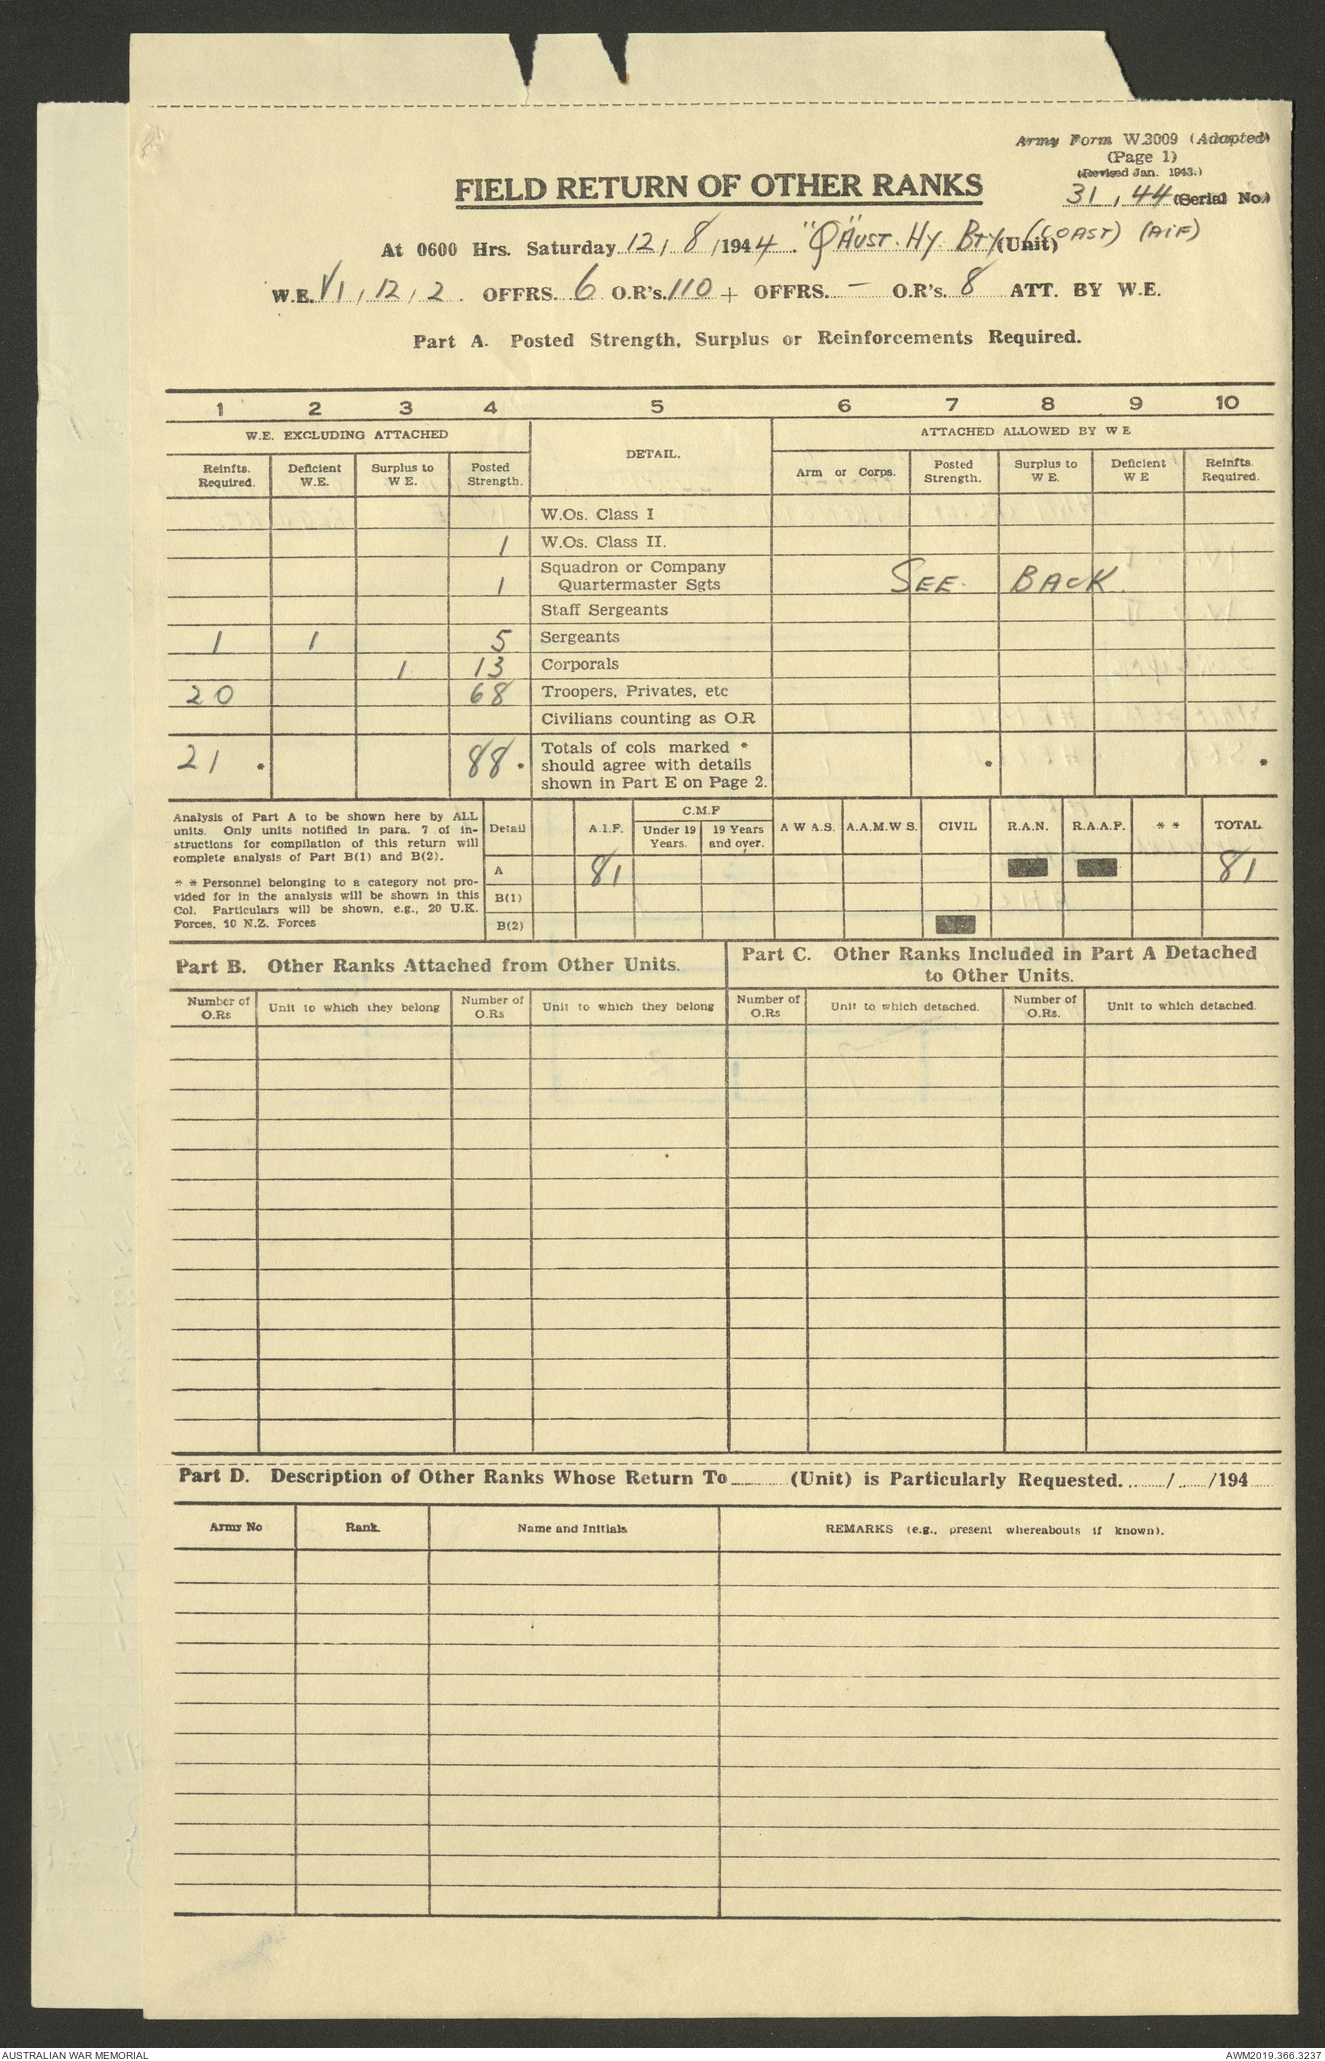 Army Form W.3009 (Adapted)
(Page 1)
(Revised Jan. 1943.)
31, 44 (Serial No.)
FIELD RETURN OF OTHER RANKS
At 0600 Hrs. Saturday 12/8/1944. "Q" AUST. HY. BTY (COAST) (AIF) (Unit)
W.E. VI, 12, 2. OFFRS. 6 O.R's. 110 + OFFRS. — O.R's. 8 ATT. BY W.E.
Part A. Posted Strength, Surplus or Reinforcements Required.
1 2 3 4 5 6 7 8 9 10
W.E. EXCLUDING ATTACHED DETAIL. ATTACHED ALLOWED BY W E
Reinfts. Required. Deficient W.E. Surplus to W E. Posted Strength. Arm or Corps. Posted Strength. Surplus to W E. Deficient W E Reinfts. Required.
W.Os. Class I
1 W.Os. Class II.
1 Squadron or Company Quartermaster Sgts SEE BACK.
Staff Sergeants
1 1 5 Sergeants
1 13 Corporals
20 68 Troopers, Privates, etc
Civilians counting as O.R
21 * 88 * Totals of cols marked * should agree with details shown in Part E on Page 2. * *
Analysis of Part A to be shown here by ALL
units. Only units notified in para. 7 of in-
structions for compilation of this return will
complete analysis of Part B(1) and B(2).
* * Personnel belonging to a category not pro-
vided for in the analysis will be shown in this
Col. Particulars will be shown, e.g., 20 U.K.
Forces, 10 N.Z. Forces
Detail A.I.F. C.M.F Under 19 Years. 19 Years and over. A W A S. A.A.M.W S. CIVIL R.A.N. R.A.A.F. * * TOTAL
A 81 81
B(1)
B(2)
Part B. Other Ranks Attached from Other Units.
Part C. Other Ranks Included in Part A Detached
to Other Units.
Number of O.Rs Unit to which they belong Number of O.Rs Unit to which they belong Number of O.Rs Unit to which detached. Number of O.Rs. Unit to which detached.
Part D. Description of Other Ranks Whose Return To ........ (Unit) is Particularly Requested. ......../....../194
Army No Rank. Name and Initials REMARKS (e.g., present whereabouts if known).
AUSTRALIAN WAR MEMORIAL
AWM2019.366.3237